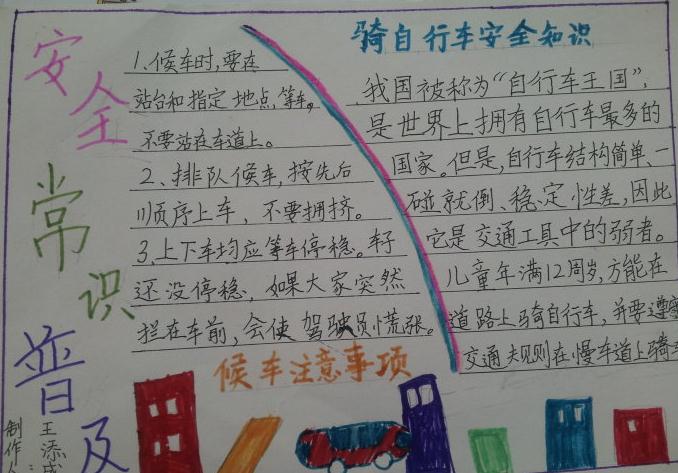 安全常识普及
1、候车时,要在
站台和指定地点,等车。
不要站在车道上。
2、排队候车,按先后
顺序上车,不要拥挤。
3.上下车均应等车停稳。车子
还没停稳,如果大家突然
拦在车前,会使驾驶员慌张。
候车注意事项
骑自行车安全知识
我国被称为“自行车王国”,
是世界上拥有自行车最多的
国家。但是,自行车结构简单、一
碰就倒、稳定性差,因此
它是交通工具中的弱者。
儿童年满12周岁,方能在
道路上骑自行车,并要遵
交通规则在慢车道上骑
制作人:王添